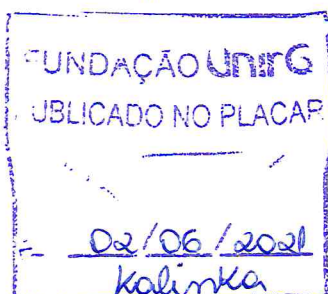 FUNDAÇÃO UnirG
UBLICADO NO PLACAR
02/06/2021
Kalinka